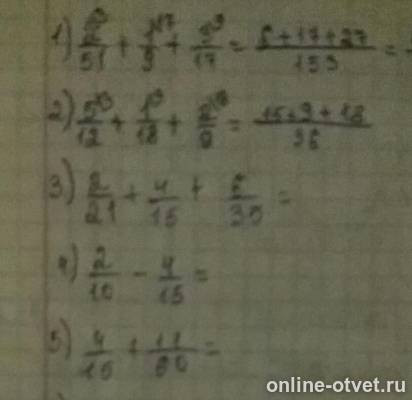 1) 2³/51 + 1¹⁷/9 + 3⁹/17 = 6+17+27/153 = -
2) 5³/12 + 1/18 + 2/9 = 15+2+18/36
3) 2/21 + 4/15 + 6/35 =
4) 2/10 - 4/15 =
5) 4/15 + 11/50 =
online-otvet.ru